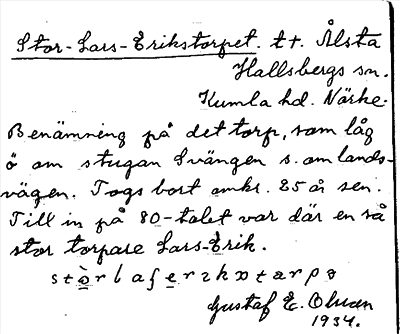 Stor-Lars-Erikstorpet. t. t. Ålsta
Hallsbergs sn.
Kumla hd. Närke.
Benämning på det torp, som låg
ö om stugan Svängen s. om lands-
vägen. Togs bort omkr. 25 år sen.
Till in på 80-talet var där en så
stor torpare Lars-Erik.
Gustaf E. Olsson
1934.